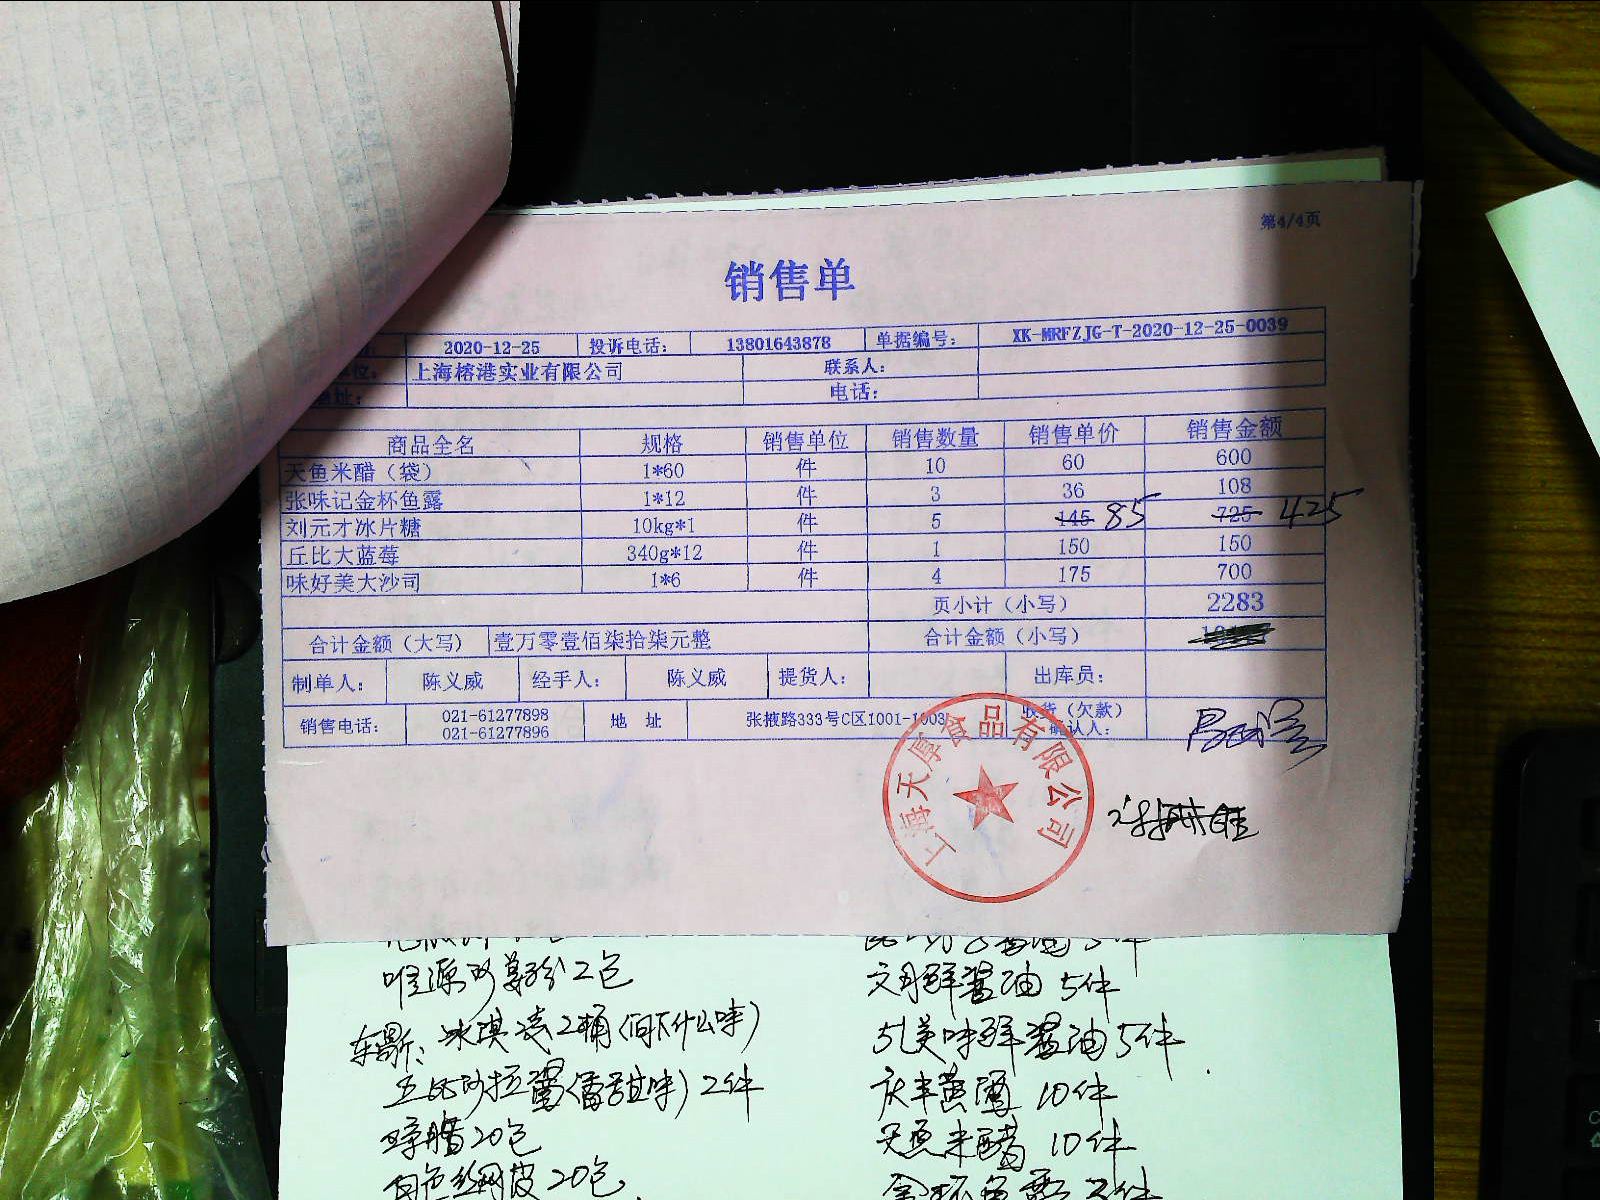 第4/4页
销售单
2020-12-25 投诉电话: 13801643878 单据编号: XK-MRFZJG-T-2020-12-25-0039
上海榕港实业有限公司 联系人:
址: 电话:
商品全名 规格 销售单位 销售数量 销售单价 销售金额
天鱼米醋（袋） 1*60 件 10 60 600
张味记金杯鱼露 1*12 件 3 36 108
刘元才冰片糖 10kg*1 件 5 145 85 725 425
丘比大蓝莓 340g*12 件 1 150 150
味好美大沙司 1*6 件 4 175 700
页小计（小写） 2283
合计金额（大写） 壹万零壹佰柒拾柒元整 合计金额（小写）
制单人: 陈义威 经手人: 陈义威 提货人: 出库员:
销售电话: 021-61277898 021-61277896 地 址 张掖路333号C区1001-1003 收货（欠款）确认人:
上海天厚食品有限公司
唯源沙姜粉2包
冰淇淋2桶(问下什么味)
丘比沙拉酱(香甜味)2件
20包
白色丝网皮20包
5件
鲜酱油 5件
美味鲜酱油5件
庆丰黄酒 10件
天鱼米醋 10件
金杯鱼露 3件